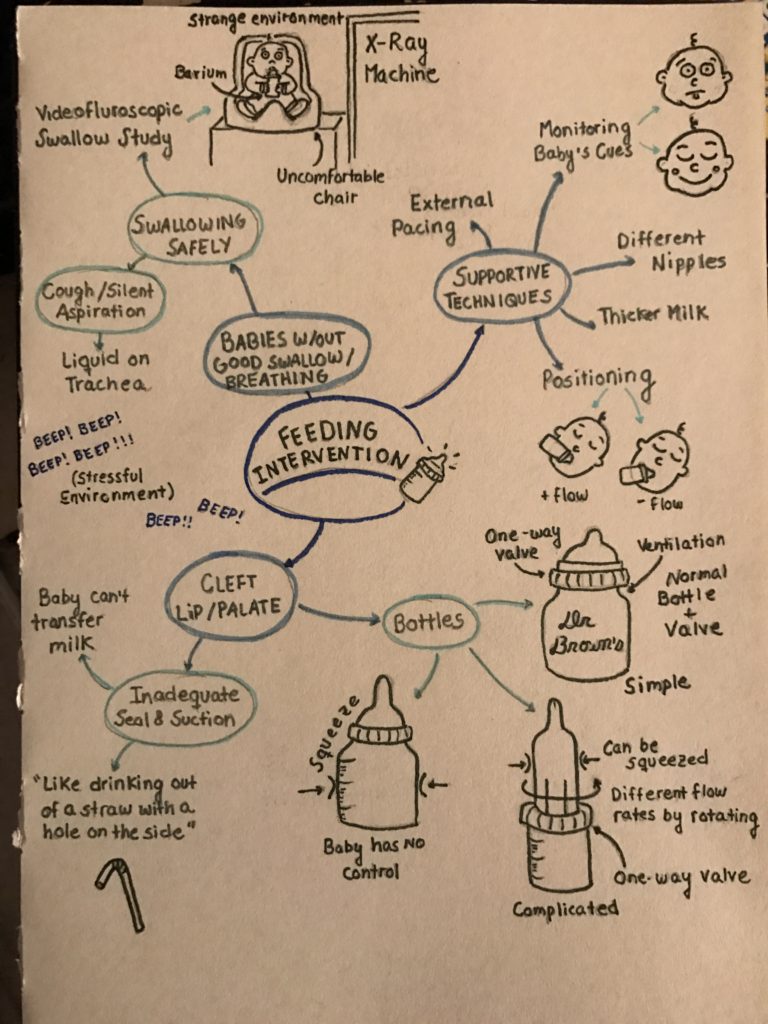 Strange environment
X-Ray
Machine
Barium
Videofluroscopic
Swallow Study
Uncomfortable
chair
Monitoring
Baby's Cues
External
Pacing
SWALLOWING
SAFELY
Different
Nipples
SUPPORTIVE
TECHNIQUES
Cough/Silent
Aspiration
Thicker Milk
BABIES W/OUT
GOOD SWALLOW/
BREATHING
Liquid on
Trachea
Positioning
FEEDING
INTERVENTION
BEEP! BEEP!
BEEP! BEEP!!!
(Stressful
Environment)
BEEP!! BEEP!
+ flow
- flow
One-way
valve
Ventilation
Normal
Bottle
+
Valve
Dr
Brown's
Simple
CLEFT
LIP/PALATE
Bottles
Baby can't
transfer
milk
Inadequate
Seal & Suction
Squeeze
Can be
squeezed
Different flow
rates by rotating
"Like drinking out
of a straw with a
hole on the side"
Baby has NO
control
One-way valve
Complicated